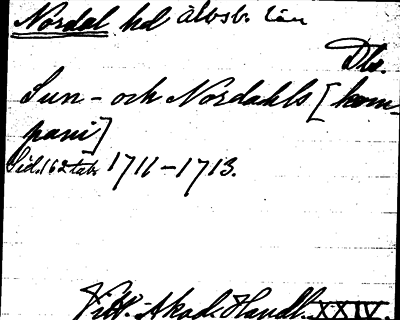 Nordal hd älvsb. län
Dls.
Sun- och Nordahls [kom-
pani]
Sid. 162 tab. 1711-1713.
Vitt. Akad. Handl. XXIV.